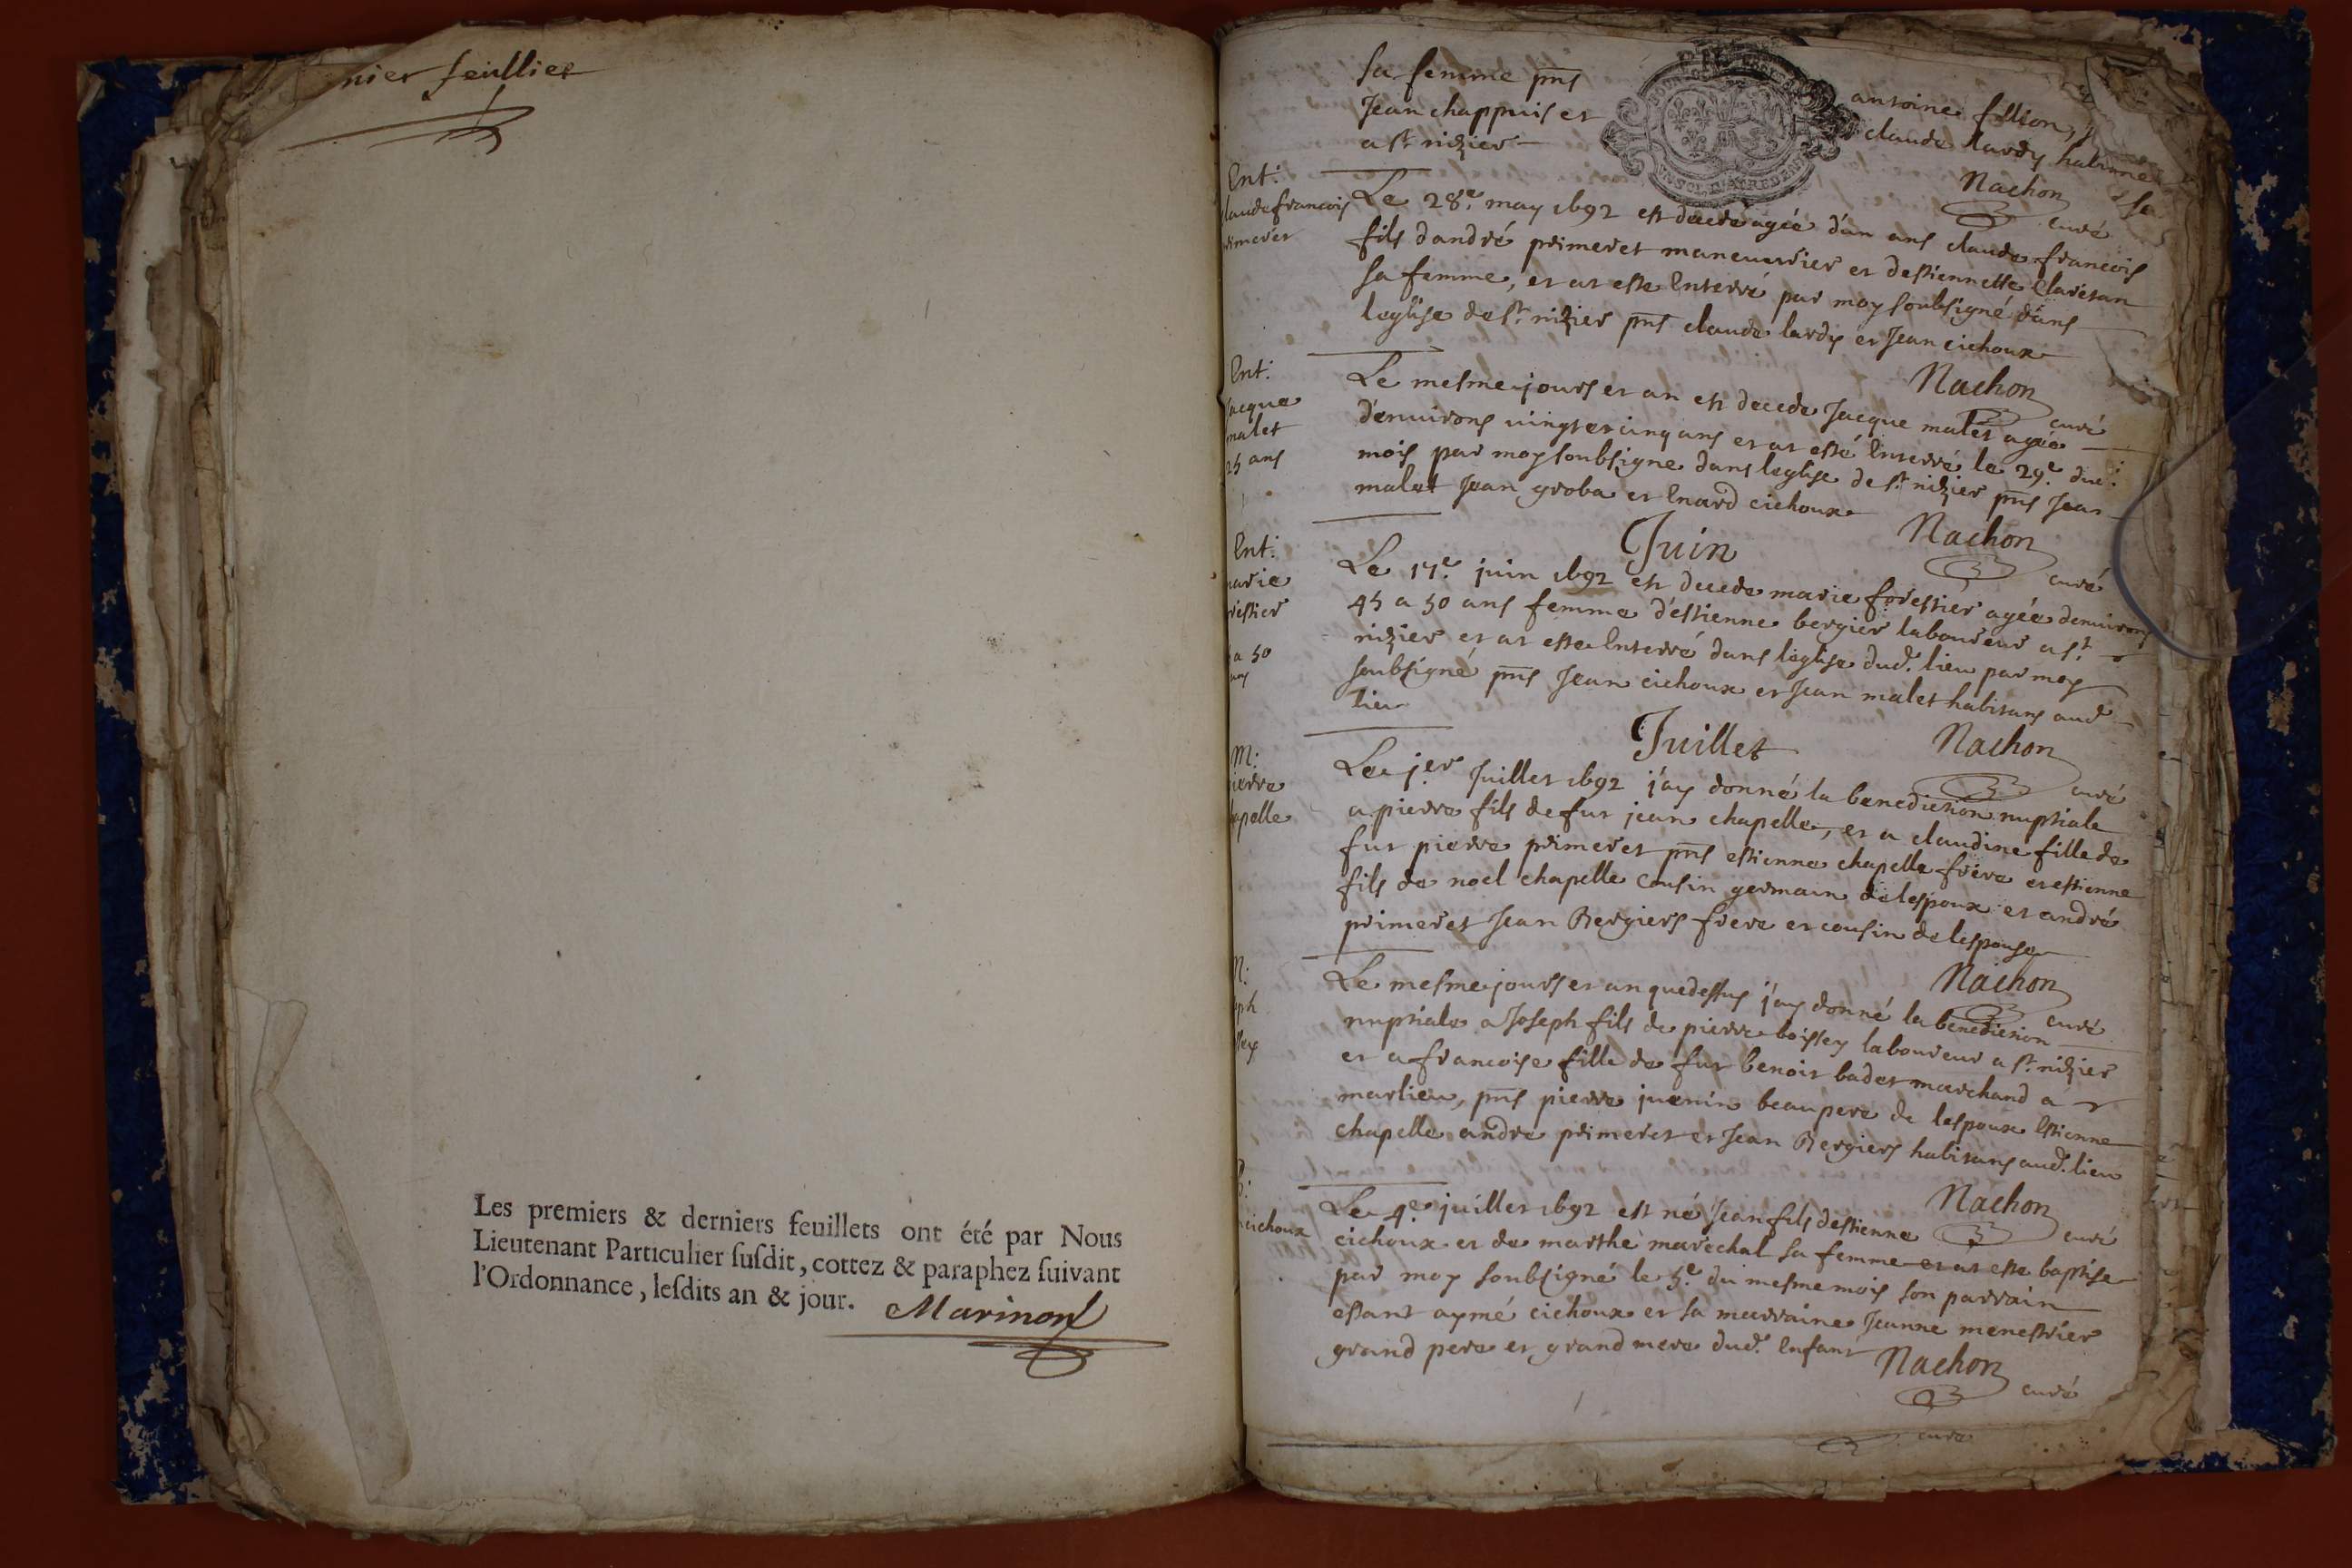 nier feullier
Les premiers & derniers feuillets ont été par Nous
Lieutenant Particulier ſuſdit, cottez & paraphez ſuivant
l'Ordonnance, leſdits an & jour.
Marinon
sa femme pns antoine fillion
Jean chappuis et claude lardy habitne
a st nizier
Nachon curé
Ent:
claude francois
primeret
Le 28e. may 1692 est decede agée d'un ans claude francois
fils dandré primeret maneuvrier et destiennette Claretan
sa femme, et at este Enterré par moy soubsigné dans
leglise de st. nizier pns claude lardy et Jean cichoux
Nachon curé
Ent:
Jacque
malet
25 ans
Le mesme jours et an est decede Jacque malet agée
d'environs vingt et cinq ans et at esté Enterré le 29e. dud.
mois par moy soubsigne dans leglise de st. nizier pns Jean
malet Jean groba et Enard cichoux
Nachon curé
Juin
Ent:
marie
restier
a 50
ans
Le 17e. juin 1692 est decede marie forestier agée denvirons
45 a 50 ans femme d'estienne bergier laboureur a st.
nizier et at este Enterré dans leglise dud. lieu par moy
soubsigné pns Jean cichoux et Jean malet habitans aud.
lieu
Nachon curé
Juillet
M:
pierre
chapelle
Le jer Juillet 1692 j'ay donné la benediction nuptiale
a pierre fils de fut jean chapelle, et a claudine fille de
fut pierre primeret pns estienne chapelle frere et estienne
fils de noel chapelle cousin germain de lespoux et andré
primeret Jean Bergiers frere et cousin de lespouse
Nachon curé
M:
eph
ssey
Le mesme jours et an quedessus j'ay donné la benediction
nuptiale a Joseph fils de pierre boissey laboureur a st. nizier
et a francoise fille de fut benoit badet marchand a
marlieu, pns pierre juenin beaupere de lespoux Estienne
chapelle andre primeret et Jean Bergiers habitans aud. lieu
Nachon curé
B:
cichoux
Le 4e. juillet 1692 est né Jean fils destienne
cichoux et de marthe marechal sa femme et at este baptise
par moy soubsigné le 5e. du mesme mois son parrain
estant aymé cichoux et sa marraine Jeanne menestrier
grand pere et grand mere dud. Enfant
Nachon curé
curé